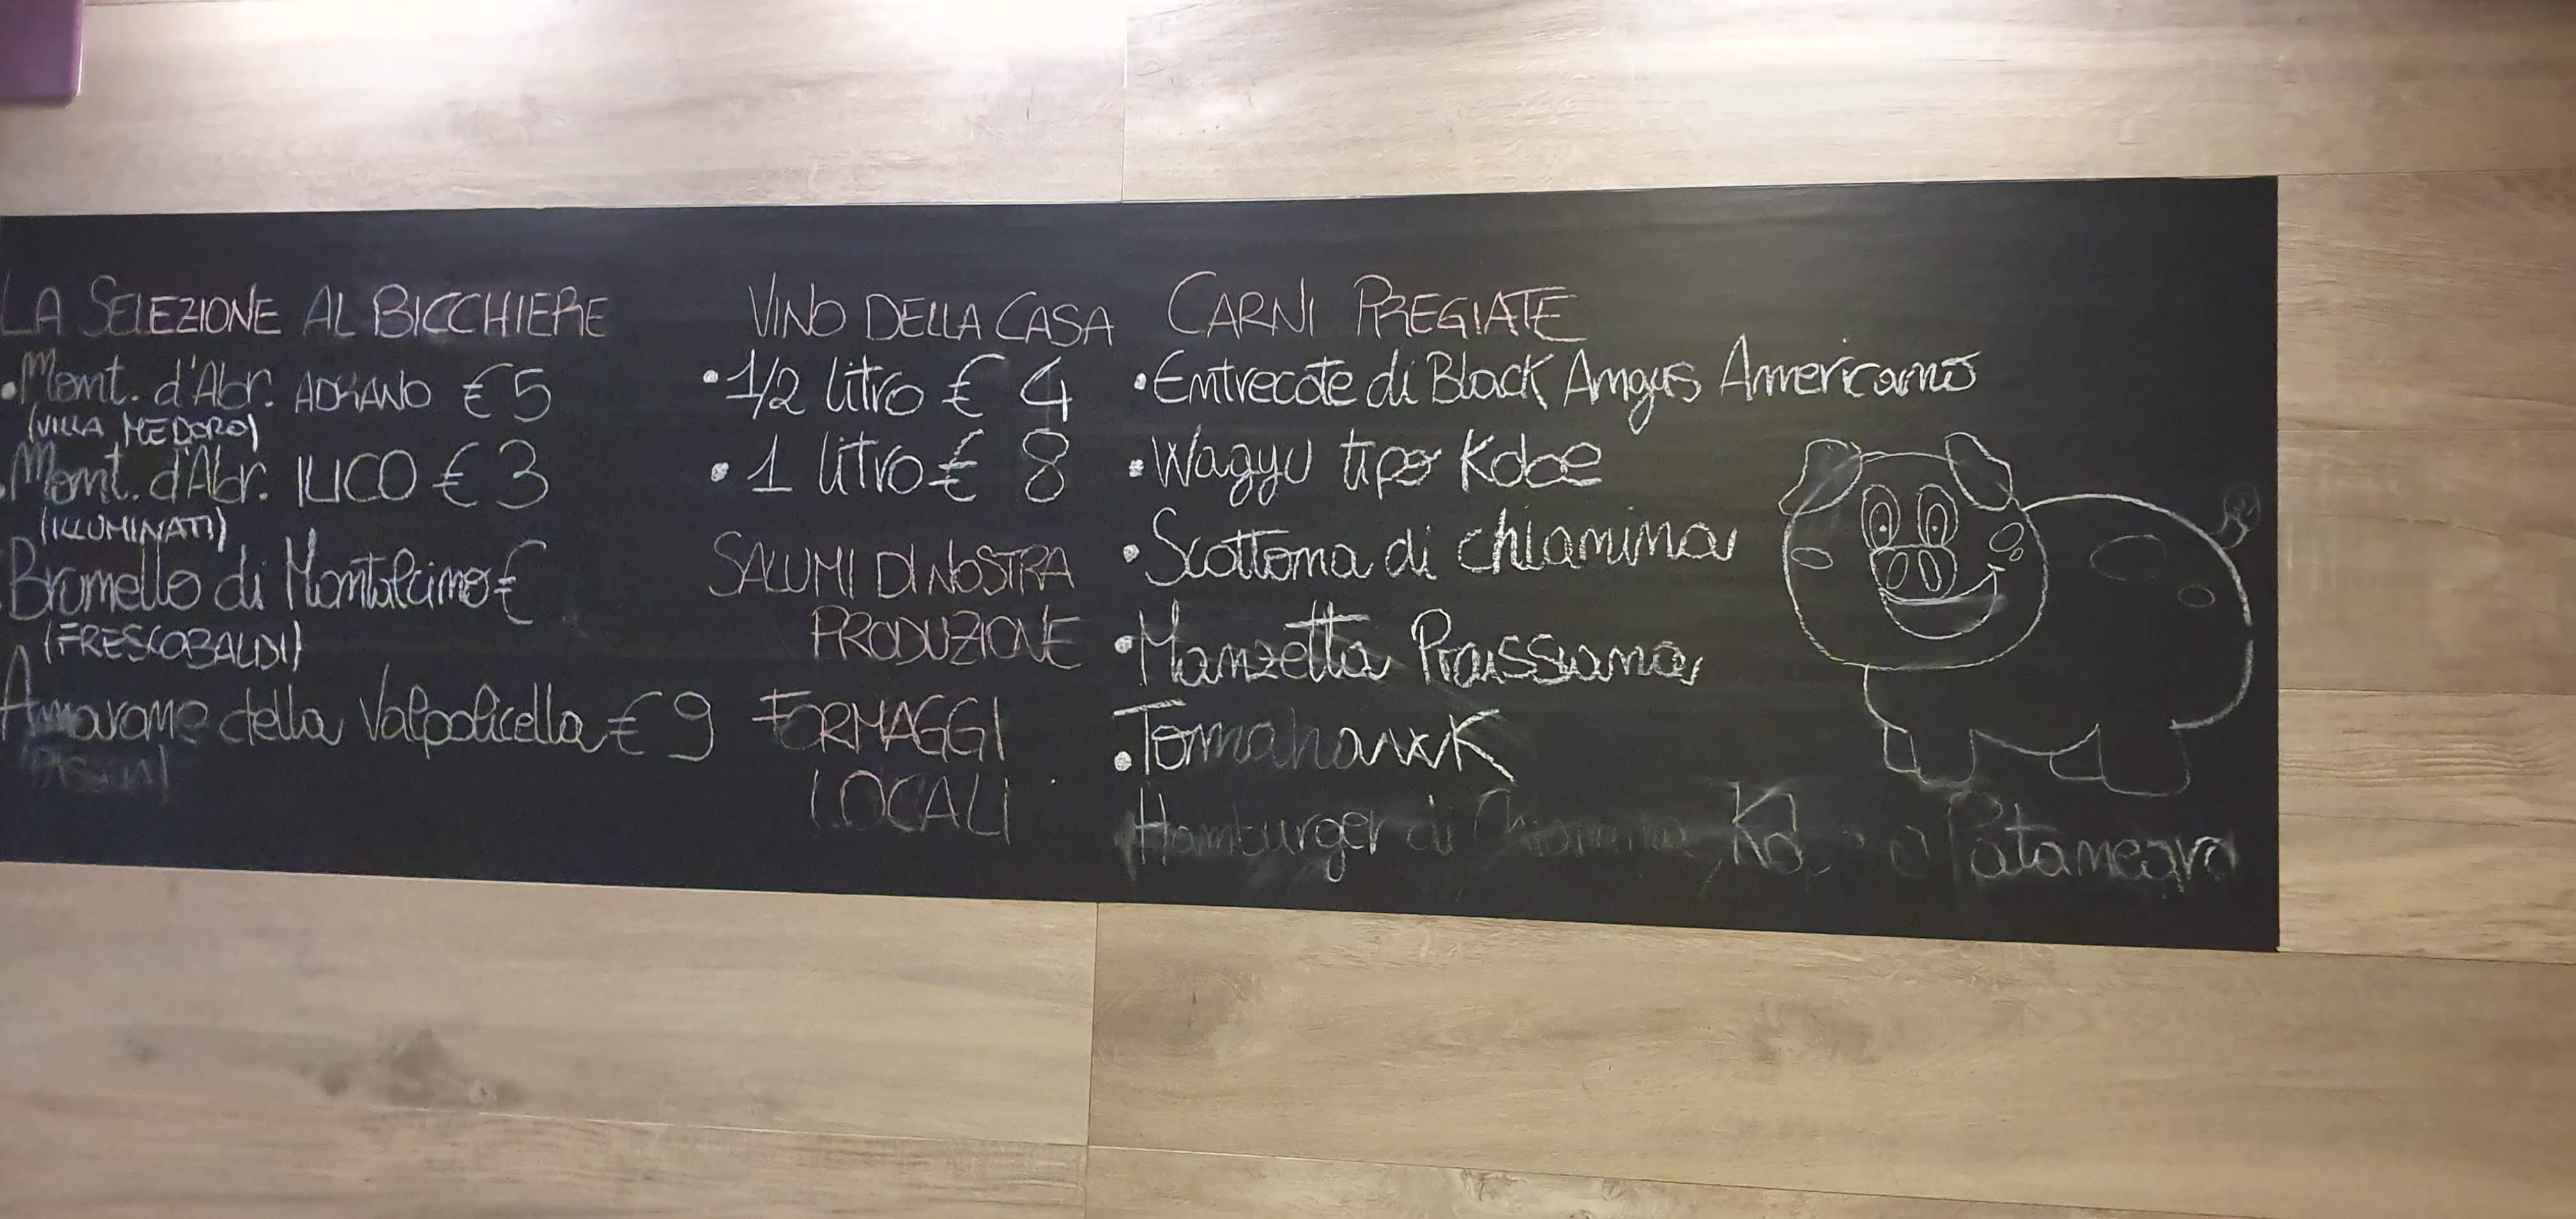 LA SELEZIONE AL BICCHIERE
• Mont. d'Abr. ADRANO € 5
(VILLA MEDORO)
• Mont. d'Abr. ILICO € 3
(ILLUMINATI)
• Brunello di Montalcino €
(FRESCOBALDI)
Amarone della Valpolicella € 9
VINO DELLA CASA
• 1/2 litro € 4
• 1 litro € 8
SALUMI DI NOSTRA
PRODUZIONE
FORMAGGI
LOCALI
CARNI PREGIATE
• Entrecote di Black Angus Americano
• Wagyu tipo Kobe
• Scottona di chianina
• Manzetta Prussiana
• Tomahawk
Hamburger di Chianina, o Patanegra